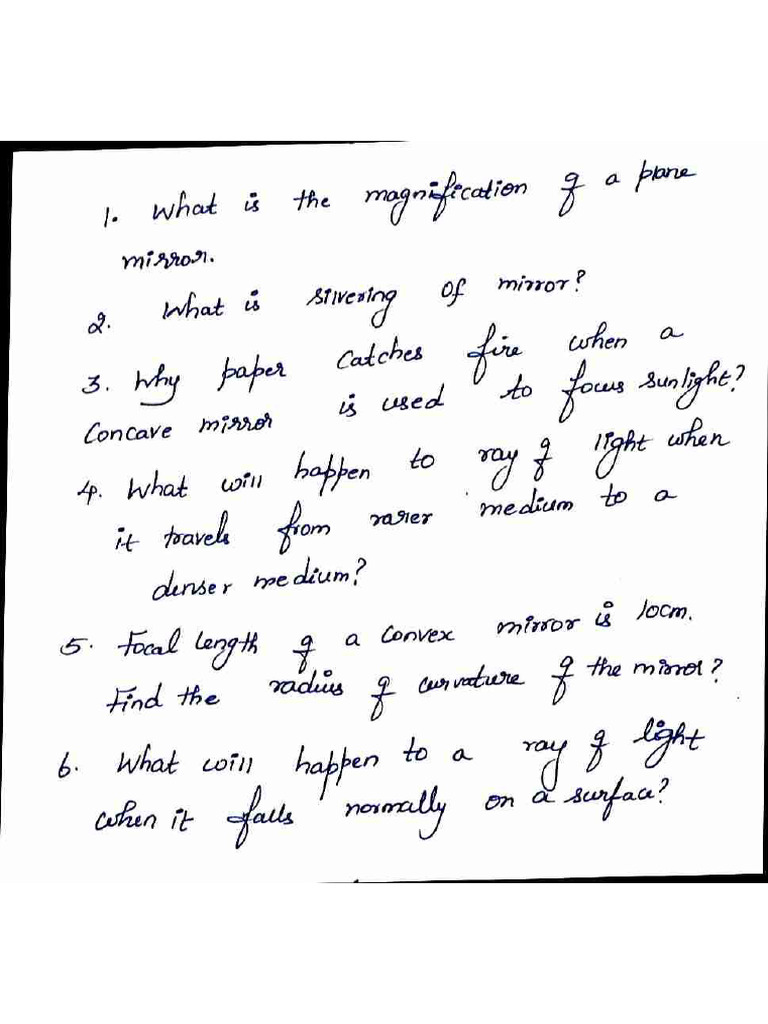 1. What is the magnification of a plane
mirror.
2. What is silvering of mirror?
3. Why paper catches fire when a
Concave mirror is used to focus sunlight?
4. What will happen to ray of light when
it travels from rarer medium to a
denser medium?
5. Focal length of a convex mirror is 10cm.
Find the radius of curvature of the mirror?
6. What will happen to a ray of light
when it falls normally on a surface?